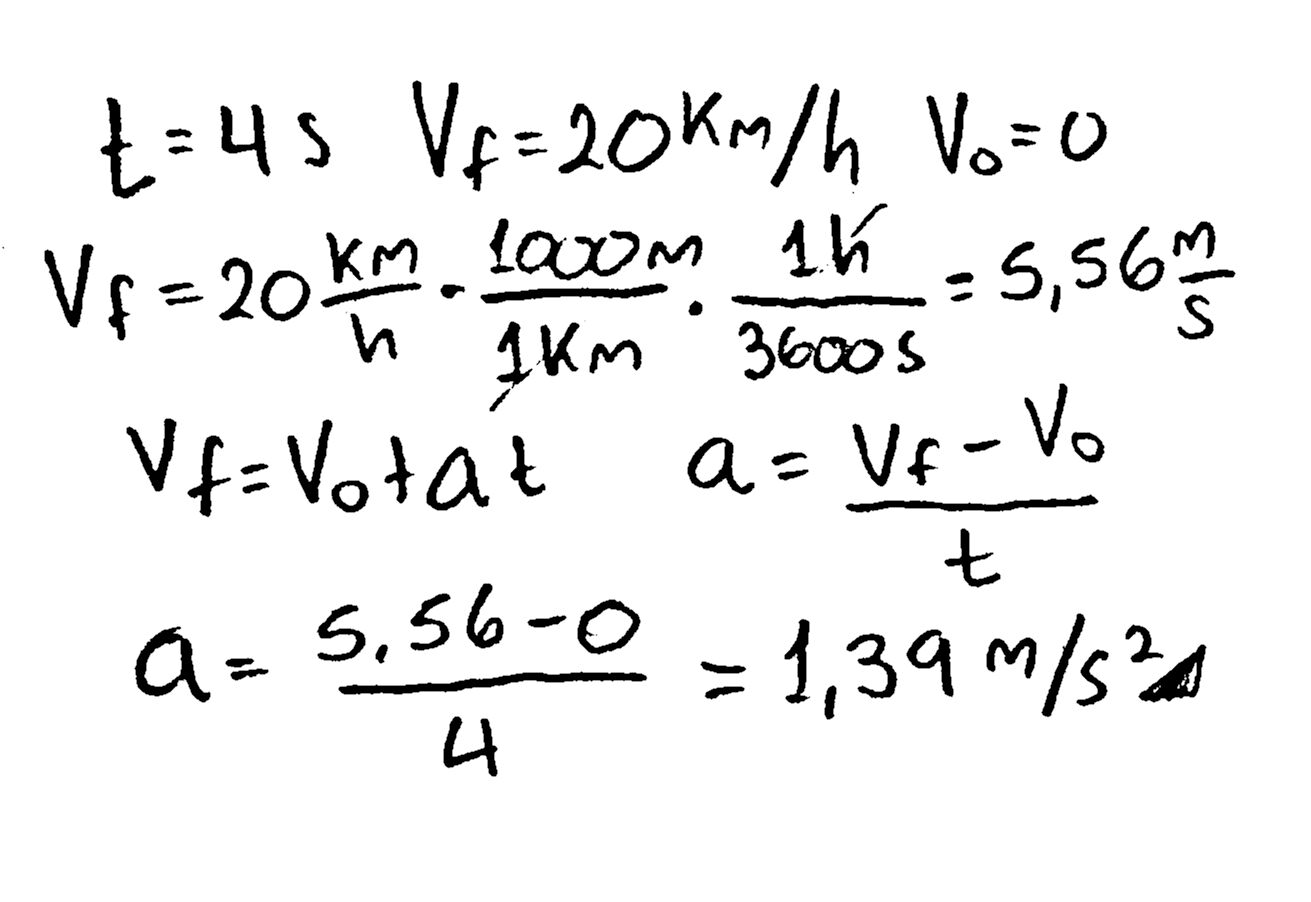 t = 4 s Vf = 20 Km/h Vo = 0
Vf = 20 Km/h · 1000m/1Km · 1h/3600s = 5,56 m/s
Vf = Vo + a t a = Vf - Vo/t
a = 5,56 - 0/4 = 1,39 m/s²